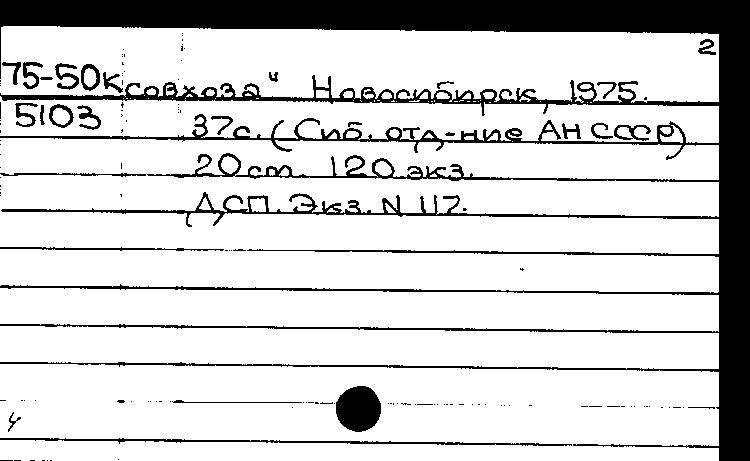 2
75-50к совхоза" Новосибирск, 1975.
5103 37с. (Сиб. отд-ние АН СССР)
20 cm. 120 экз.
ДСП. Экз. N 117.
4